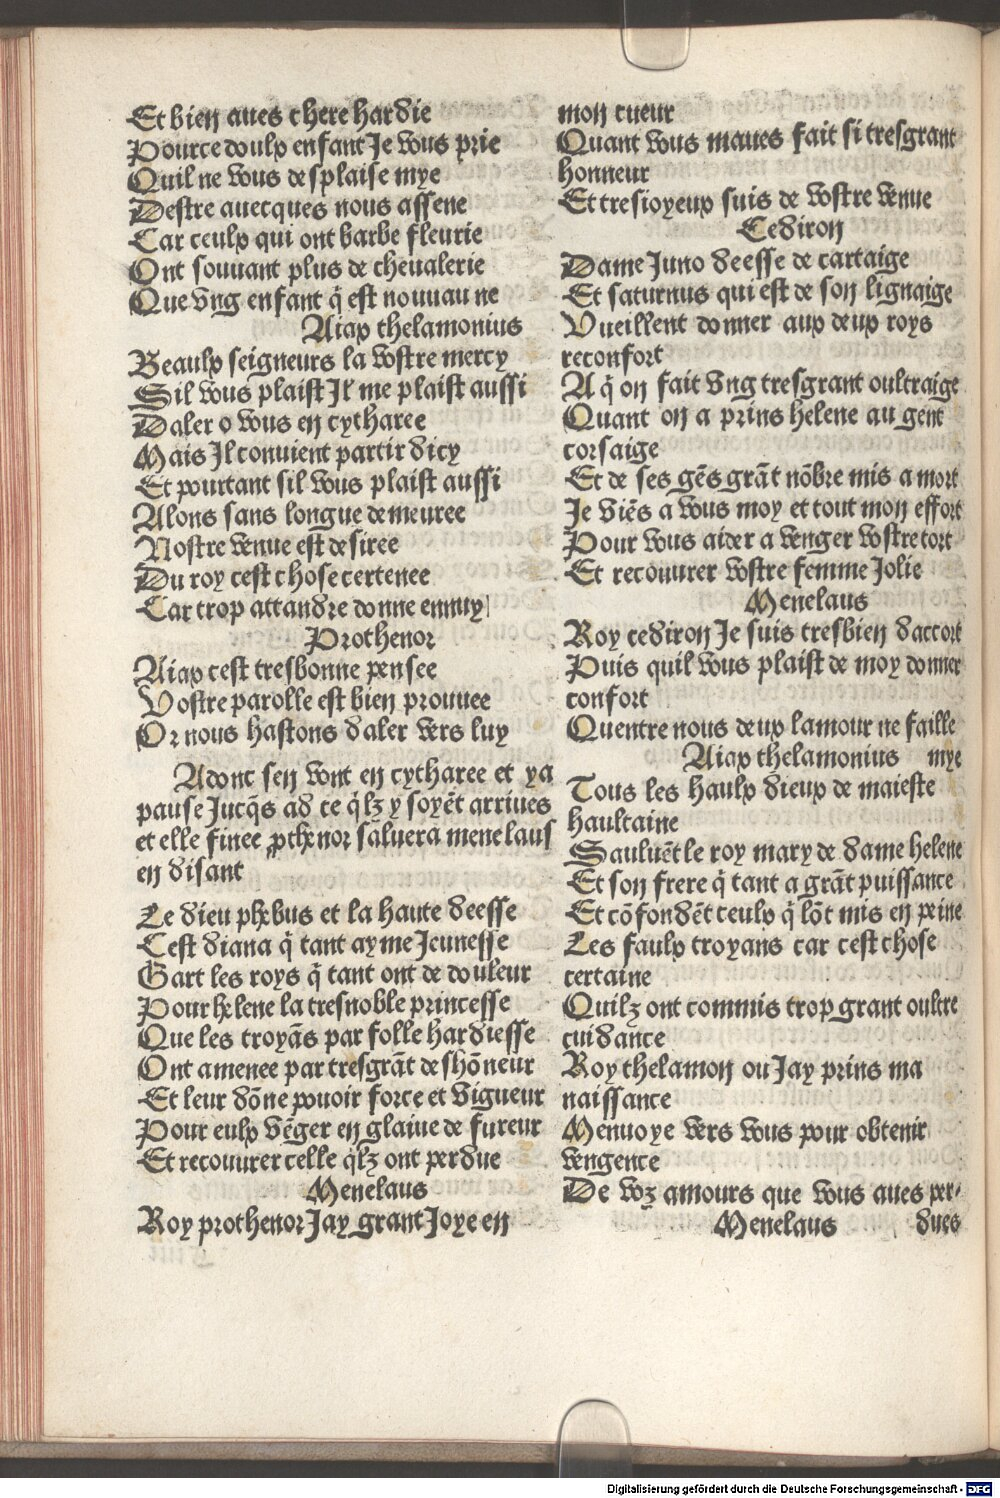 Et bien aues chere hardie
Pource doulx enfant Je vous prie
Quil ne vous desplaise mye
Destre auecques nous assene
Car ceulx qui ont barbe fleurie
Ont souuant plus de cheualerie
Que vng enfant q̃ est nouuau ne
Aiax thelamonius
Beaulx seigneurs la vostre mercy
Sil vous plaist Il me plaist aussi
Daler o vous en cytharee
Mais Il conuient partir dicy
Et pourtant sil vous plaist aussi
Alons sans longue demeuree
Nostre venue est desiree
Du roy cest chose certenee
Car trop attandre donne ennuy
Prothenor
Aiax cest tresbonne pensee
Vostre parolle est bien prouuee
Or nous hastons daler vers luy
Adonc sen vont en cytharee et ya
pause Jucq̃s ad ce q̃lz y soyẽt arriues
et elle finee ꝓthenor saluera menelaus
en disant
Le dieu phebus et la haute deesse
Cest diana q̃ tant ayme Jeunesse
Gart les roys q̃ tant ont de douleur
Pour helene la tresnoble princesse
Que les troyãs par folle hardiesse
Ont amenee par tresgrãt deshõneur
Et leur dõne pouoir force et vigueur
Pour eulx vẽger en glaiue de fureur
Et recouurer celle q̃lz ont perdue
Menelaus
Roy prothenor Jay grant Joye en
mon cueur
Quant vous maues fait si tresgrant
honneur
Et tresioyeux suis de vostre venue
Cediron
Dame Juno deesse de cartaige
Et saturnus qui est de son lignaige
Vueillent donner aux deux roys
reconfort
A q̃ on fait vng tresgrant oultraige
Quant on a prins helene au gent
corsaige
Et de ses gẽs grãt nõbre mis a mort
Je viẽs a vous moy et tout mon effort
Pour vous aider a venger vostre tort
Et recouurer vostre femme Jolie
Menelaus
Roy cediron Je suis tresbien daccort
Puis quil vous plaist de moy donner
confort
Quentre nous deux lamour ne faille
Aiax thelamonius mye
Tous les haulx dieux de maieste
haultaine
Sauluẽt le roy mary de dame helene
Et son frere q̃ tant a grãt puissance
Et cõfondẽt ceulx q̃ lõt mis en peine
Les faulx troyans car cest chose
certaine
Quilz ont commis trop grant oultre
cuidance
Roy thelamon ou Jay prins ma
naissance
Menuoye vers vous pour obtenir
vengence
De voz amours que vous aues per-
Menelaus dues
Digitalisierung gefördert durch die Deutsche Forschungsgemeinschaft - DFG